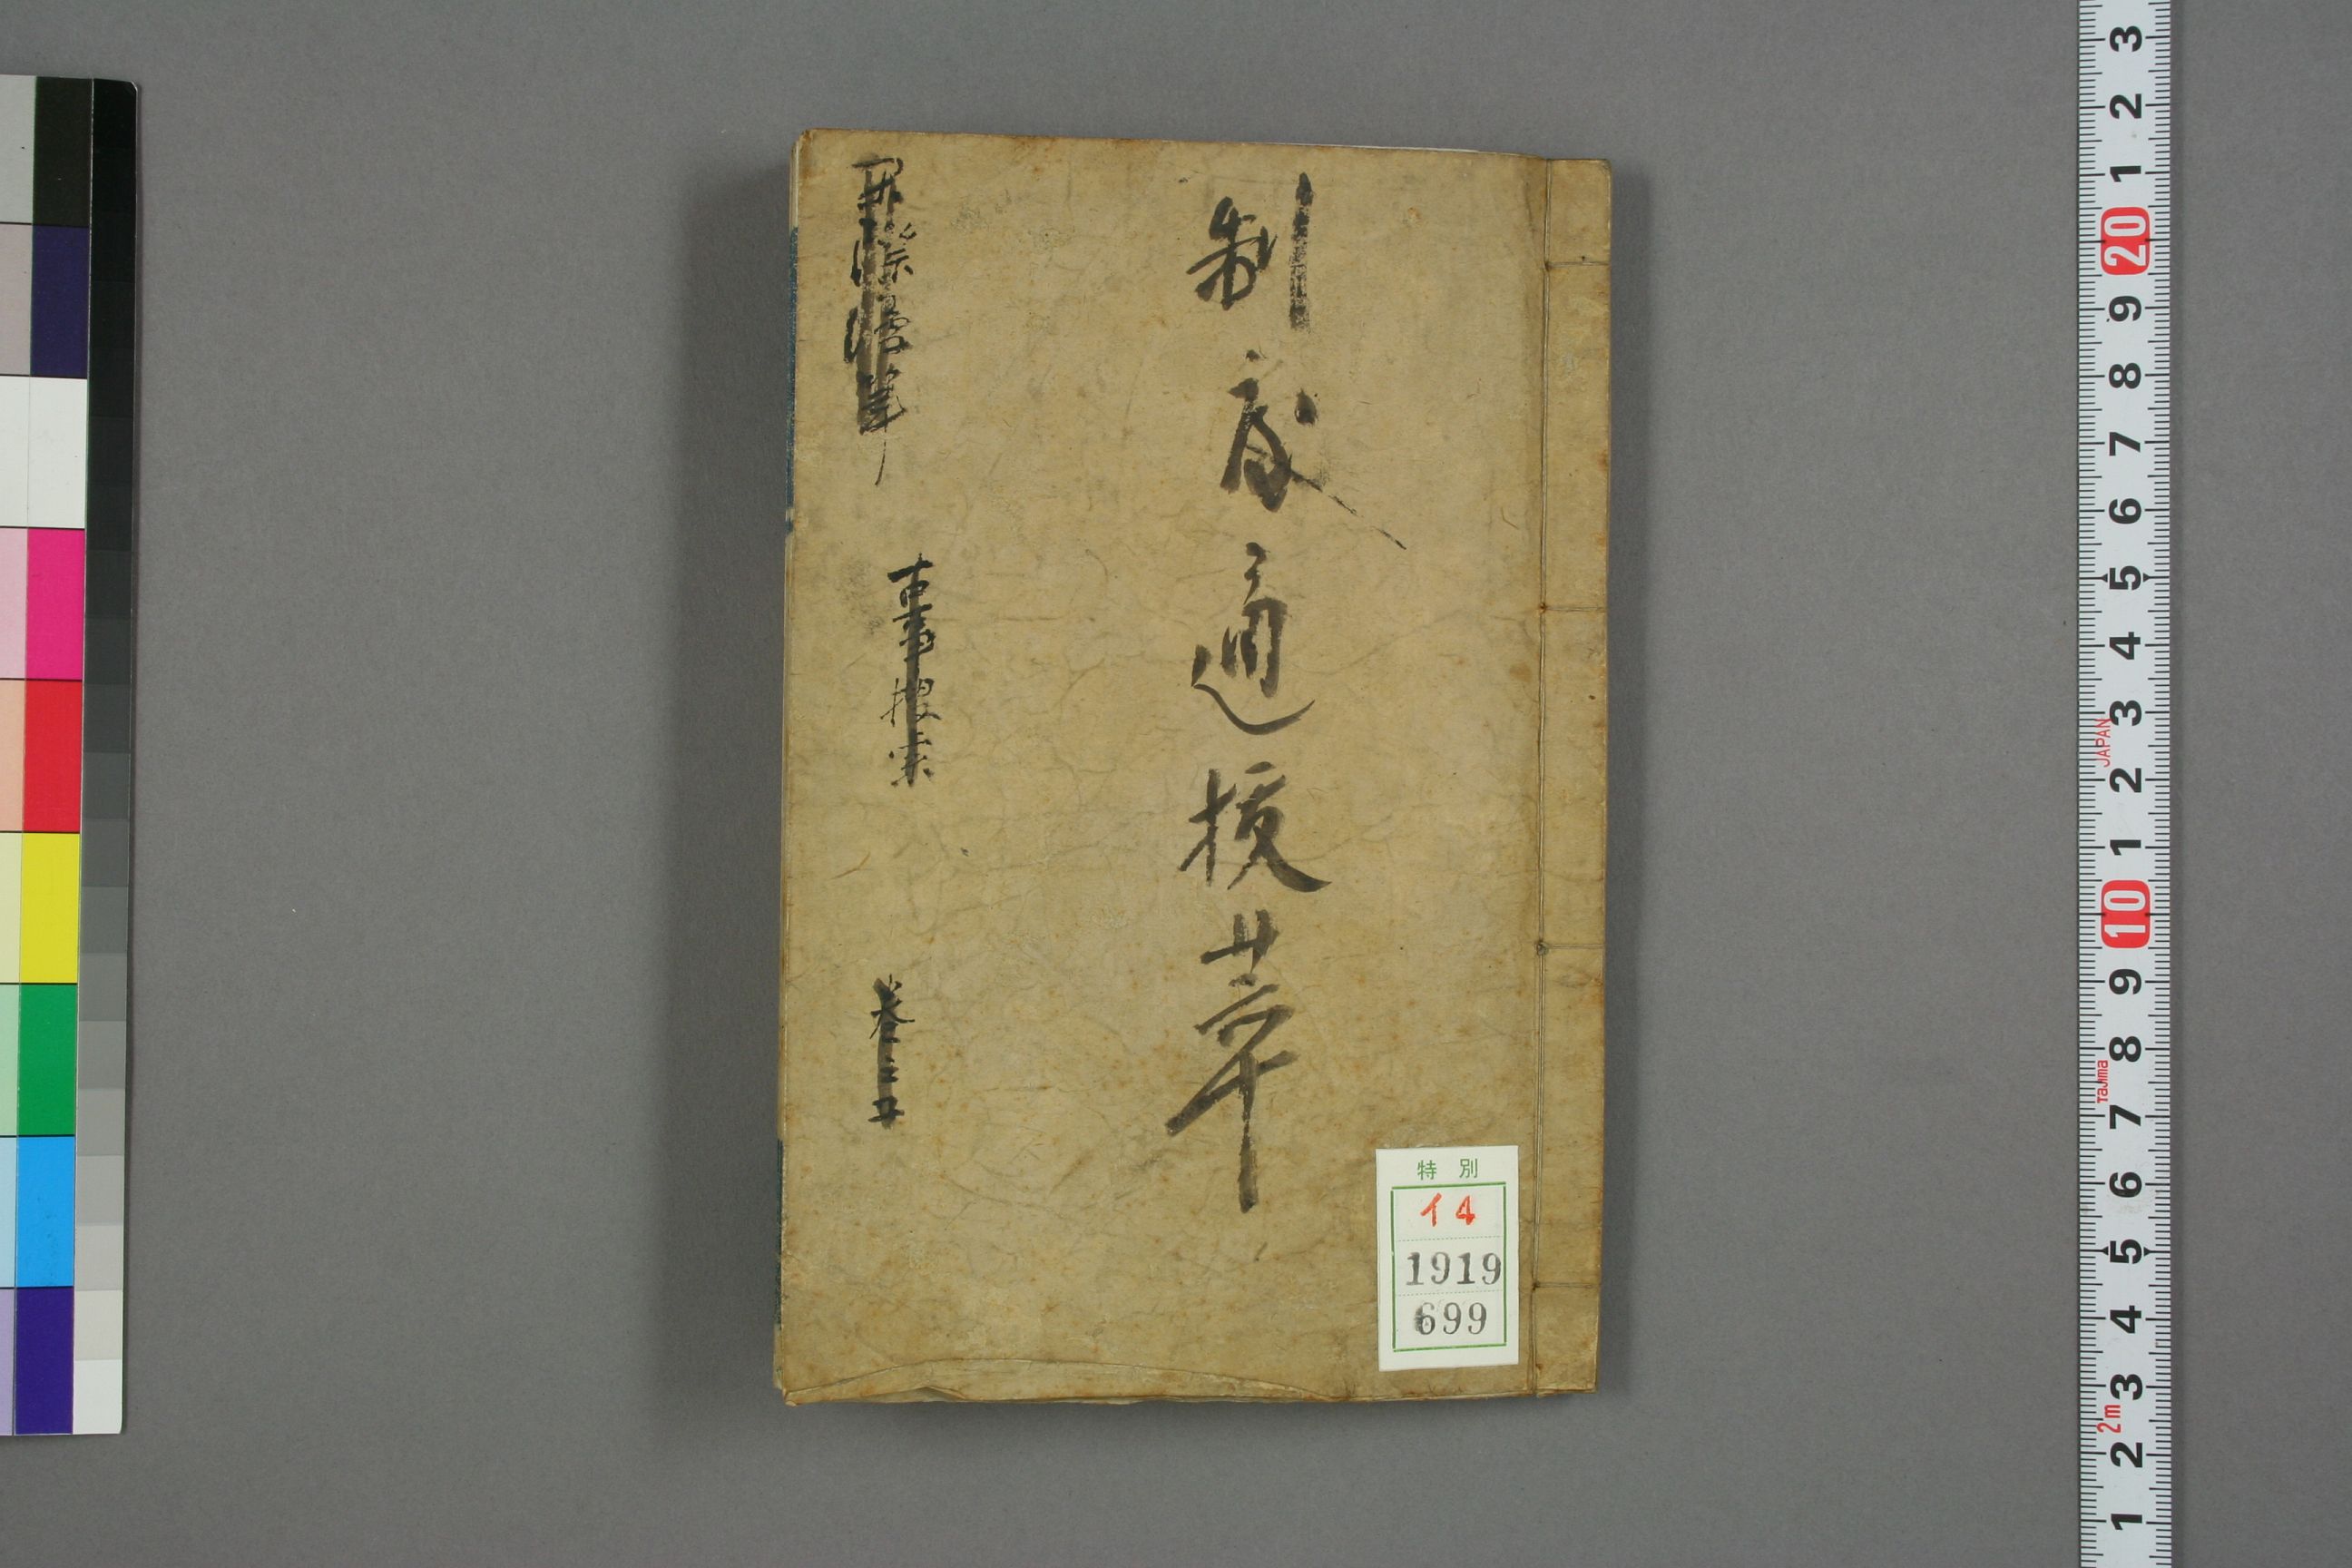 制度通抜萃
漫筆
古事
巻之
特別
イ4
1919
699
3
2
1
20
9
8
7
6
5
4
3
JAPAN
2
1
10
9
8
Tajima
7
6
5
4
3
2m
2
1